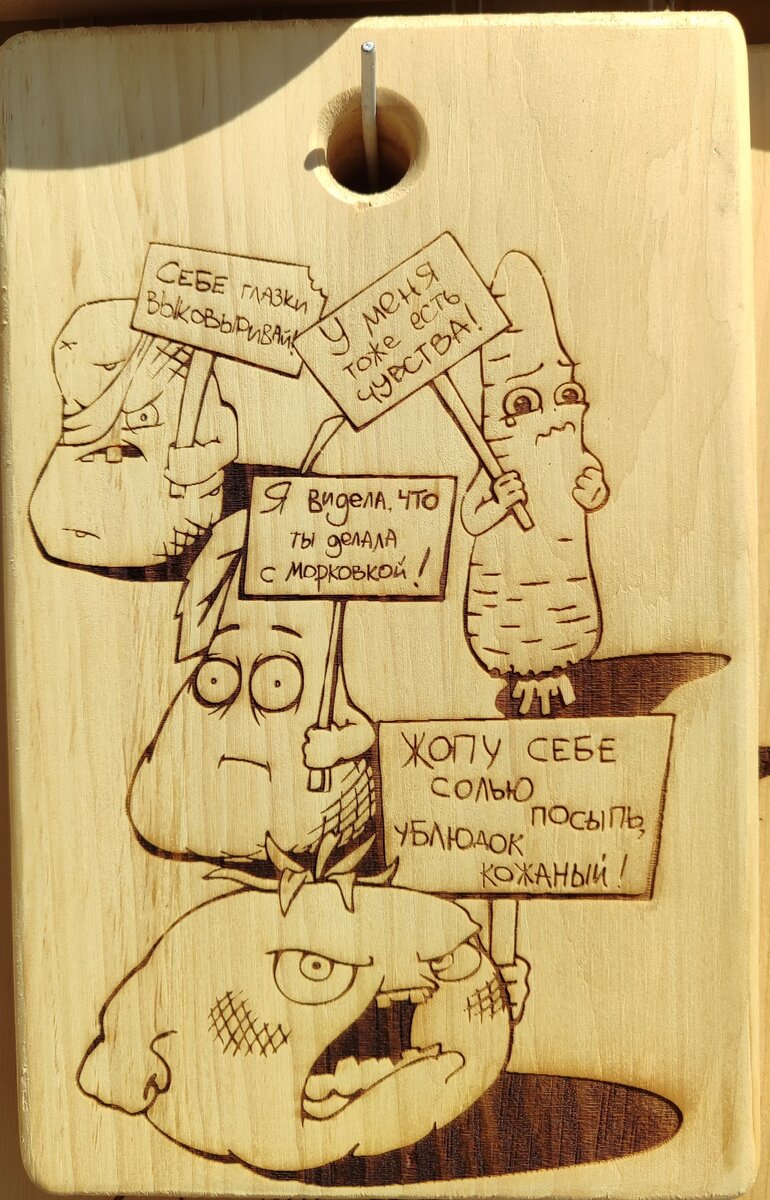 СЕБЕ ГЛАЗКИ
ВЫКОВЫРИВАЙ!
У МЕНЯ
ТОЖЕ ЕСТЬ
ЧУВСТВА!
Я ВИДЕЛА, ЧТО
ТЫ ДЕЛАЛА
С МОРКОВКОЙ!
ЖОПУ СЕБЕ
СОЛЬЮ
ПОСЫПЬ,
УБЛЮДОК
КОЖАНЫЙ!